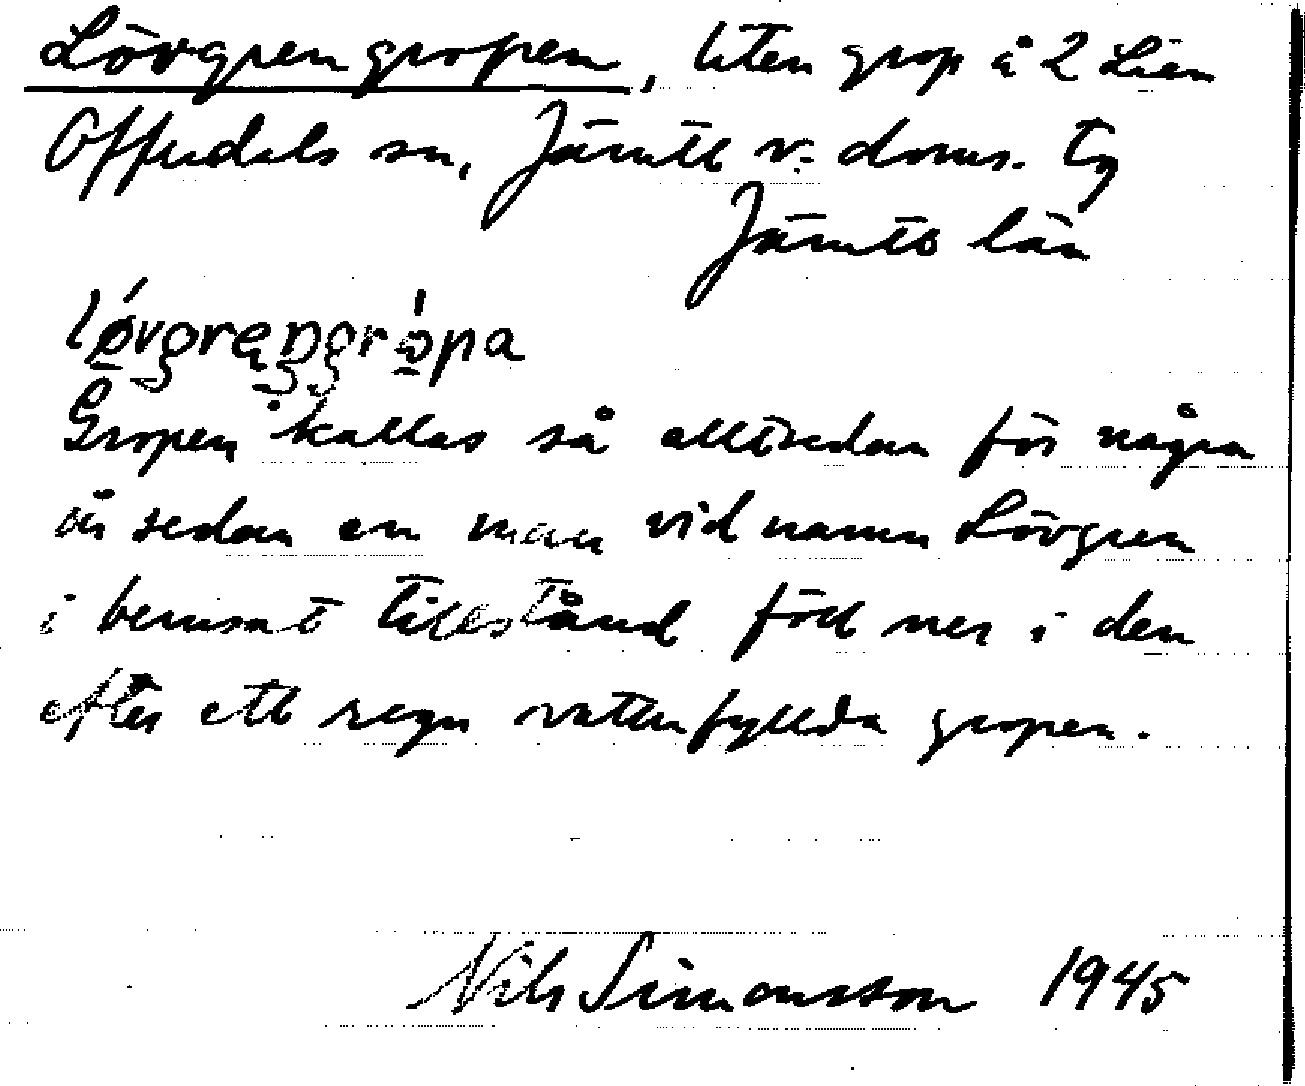 Lövgrengropen, liten grop å 2 Lien
Offerdals sn, Jämtl v. doms. tg
Jämtl län
Gropen kallas så alltsedan för några
år sedan en man vid namn Lövgren
i berusat tillstånd föll ner i den
efter ett regn vattenfyllda gropen.
Nils Simonsson 1945